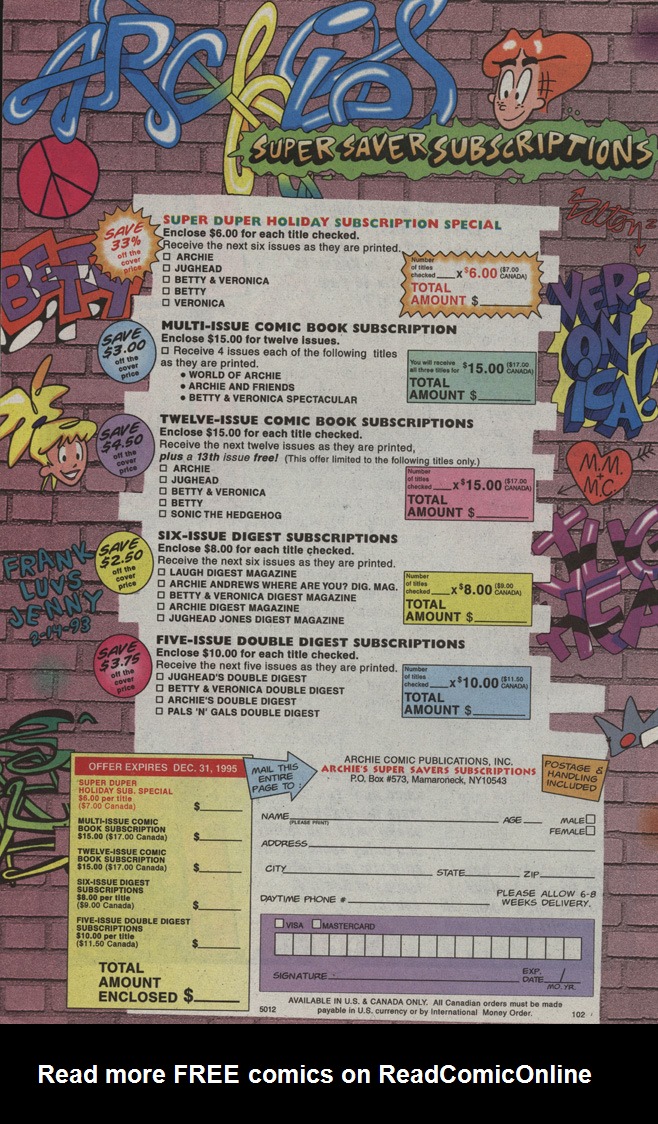 ARCHIE'S
SUPER SAVER SUBSCRIPTIONS
Dilton
BETTY
VER-
ON-
ICA!
M.M.
M.C.
FRANK
LUVS
JENNY
2-14-93
SAVE
33%
off the
cover
price
SUPER DUPER HOLIDAY SUBSCRIPTION SPECIAL
Enclose $6.00 for each title checked.
Receive the next six issues as they are printed.
☐ ARCHIE
☐ JUGHEAD
☐ BETTY & VERONICA
☐ BETTY
☐ VERONICA
Number
of titles
checked ____ x $6.00 ($7.00 CANADA)
TOTAL
AMOUNT $____
SAVE
$3.00
off the
cover
price
MULTI-ISSUE COMIC BOOK SUBSCRIPTION
Enclose $15.00 for twelve issues.
☐ Receive 4 issues each of the following titles
as they are printed.
• WORLD OF ARCHIE
• ARCHIE AND FRIENDS
• BETTY & VERONICA SPECTACULAR
You will receive
all three titles for $15.00 ($17.00 CANADA)
TOTAL
AMOUNT $____
SAVE
$4.50
off the
cover
price
TWELVE-ISSUE COMIC BOOK SUBSCRIPTIONS
Enclose $15.00 for each title checked.
Receive the next twelve issues as they are printed,
plus a 13th issue free! (This offer limited to the following titles only.)
☐ ARCHIE
☐ JUGHEAD
☐ BETTY & VERONICA
☐ BETTY
☐ SONIC THE HEDGEHOG
Number
of titles
checked ____ x $15.00 ($17.00 CANADA)
TOTAL
AMOUNT $____
SAVE
$2.50
off the
cover
price
SIX-ISSUE DIGEST SUBSCRIPTIONS
Enclose $8.00 for each title checked.
Receive the next six issues as they are printed.
☐ LAUGH DIGEST MAGAZINE
☐ ARCHIE ANDREWS WHERE ARE YOU? DIG. MAG.
☐ BETTY & VERONICA DIGEST MAGAZINE
☐ ARCHIE DIGEST MAGAZINE
☐ JUGHEAD JONES DIGEST MAGAZINE
Number
of titles
checked ____ x $8.00 ($9.00 CANADA)
TOTAL
AMOUNT $____
SAVE
$3.75
off the
cover
price
FIVE-ISSUE DOUBLE DIGEST SUBSCRIPTIONS
Enclose $10.00 for each title checked.
Receive the next five issues as they are printed.
☐ JUGHEAD'S DOUBLE DIGEST
☐ BETTY & VERONICA DOUBLE DIGEST
☐ ARCHIE'S DOUBLE DIGEST
☐ PALS 'N' GALS DOUBLE DIGEST
Number
of titles
checked ____ x $10.00 ($11.50 CANADA)
TOTAL
AMOUNT $____
OFFER EXPIRES DEC. 31, 1995
SUPER DUPER
HOLIDAY SUB. SPECIAL
$6.00 per title
($7.00 Canada) $____
MULTI-ISSUE COMIC
BOOK SUBSCRIPTION
$15.00 ($17.00 Canada) $____
TWELVE-ISSUE COMIC
BOOK SUBSCRIPTION
$15.00 ($17.00 Canada) $____
SIX-ISSUE DIGEST
SUBSCRIPTIONS
$8.00 per title
($9.00 Canada) $____
FIVE-ISSUE DOUBLE DIGEST
SUBSCRIPTIONS
$10.00 per title
($11.50 Canada) $____
TOTAL
AMOUNT
ENCLOSED $____
MAIL THIS
ENTIRE
PAGE TO:
ARCHIE COMIC PUBLICATIONS, INC.
ARCHIE'S SUPER SAVERS SUBSCRIPTIONS
P.O. Box #573, Mamaroneck, NY10543
POSTAGE &
HANDLING
INCLUDED
NAME____ AGE____ MALE ☐
(PLEASE PRINT)
FEMALE ☐
ADDRESS____
CITY____ STATE____ ZIP____
DAYTIME PHONE #____
PLEASE ALLOW 6-8
WEEKS DELIVERY.
☐ VISA ☐ MASTERCARD
SIGNATURE:____ EXP. DATE__/__
MO. YR.
AVAILABLE IN U.S. & CANADA ONLY. All Canadian orders must be made
payable in U.S. currency or by International Money Order.
5012
102
Read more FREE comics on ReadComicOnline